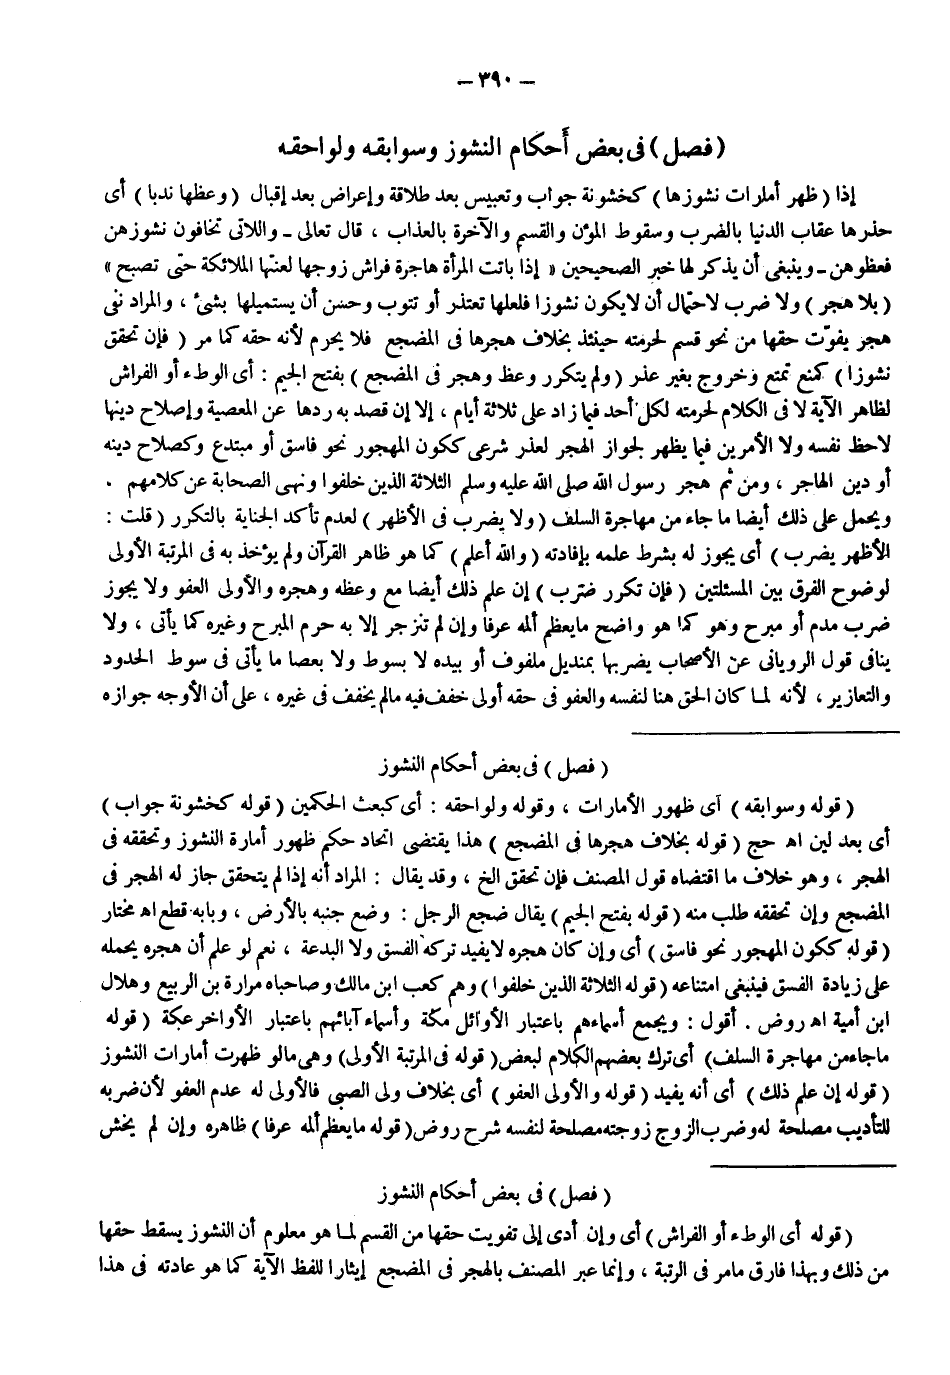 – ٣٩٠ –
( فصل ) فى بعض أحكام النشوز وسوابقه ولواحقه
إذا ( ظهر أمارات نشوزها ) كخشونة جواب وتعبيس بعد طلاقة وإعراض بعد إقبال ( وعظها ندبا ) أى
حذرها عقاب الدنيا بالضرب وسقوط المؤن والقسم والآخرة بالعذاب ، قال تعالى ـ واللاتى تخافون نشوزهن
فعظوهن ـ وينبغى أن يذكر لها خبر الصحيحين « إذا باتت المرأة هاجرة فراش زوجها لعنتها الملائكة حتى تصبح »
( بلا هجر ) ولا ضرب لاحتمال أن لايكون نشوزا فلعلها تعتذر أو تتوب وحسن أن يستميلها بشىء ، والمراد نفى
هجر يفوّت حقها من نحو قسم لحرمته حينئذ بخلاف هجرها فى المضجع فلا يحرم لأنه حقه كما مر ( فإن تحقق
نشوزا ) كمنع تمتع وخروج بغير عذر ( ولم يتكرر وعظ وهجر فى المضجع ) بفتح الجيم : أى الوطء أو الفراش
لظاهر الآية لا فى الكلام لحرمته لكل أحد فيما زاد على ثلاثة أيام ، إلا إن قصد به ردها عن المعصية وإصلاح دينها
لاحظ نفسه ولا الأمرين فيما يظهر لجواز الهجر لعذر شرعى ككون المهجور نحو فاسق أو مبتدع وكصلاح دينه
أو دين الهاجر ، ومن ثم هجر رسول الله صلى الله عليه وسلم الثلاثة الذين خلفوا ونهى الصحابة عن كلامهم .
ويحمل على ذلك أيضا ما جاء من مهاجرة السلف ( ولا يضرب فى الأظهر ) لعدم تأكد الجناية بالتكرر ( قلت :
الأظهر يضرب ) أى يجوز له بشرط علمه بإفادته ( والله أعلم ) كما هو ظاهر القرآن ولم يؤخذ به فى المرتبة الأولى
لوضوح الفرق بين المسئلتين ( فإن تكرر ضرب ) إن علم ذلك أيضا مع وعظه وهجره والأولى العفو ولا يجوز
ضرب مدم أو مبرح وهو كما هو واضح مايعظم ألمه عرفا وإن لم تنزجر إلا به حرم المبرح وغيره كما يأتى ، ولا
ينافى قول الرويانى عن الأصحاب يضربها بمنديل ملفوف أو بيده لا بسوط ولا بعصا ما يأتى فى سوط الحدود
والتعازير ، لأنه لما كان الحق هنا لنفسه والعفو فى حقه أولى خفف فيه مالم يخفف فى غيره ، على أن الأوجه جوازه
( فصل ) فى بعض أحكام النشوز
( قوله وسوابقه ) أى ظهور الأمارات ، وقوله ولواحقه : أى كبعث الحكمين ( قوله كخشونة جواب )
أى بعد لين اه حج ( قوله بخلاف هجرها فى المضجع ) هذا يقتضى اتحاد حكم ظهور أمارة النشوز وتحققه فى
الهجر ، وهو خلاف ما اقتضاه قول المصنف فإن تحقق الخ ، وقد يقال : المراد أنه إذا لم يتحقق جاز له الهجر فى
المضجع وإن تحققه طلب منه ( قوله بفتح الجيم ) يقال ضجع الرجل : وضع جنبه بالأرض ، وبابه قطع اه مختار
( قوله ككون المهجور نحو فاسق ) أى وإن كان هجره لايفيد تركه الفسق ولا البدعة ، نعم لو علم أن هجره يحمله
على زيادة الفسق فينبغى امتناعه ( قوله الثلاثة الذين خلفوا ) وهم كعب ابن مالك وصاحباه مرارة بن الربيع وهلال
ابن أمية اه روض . أقول : ويجمع أسماءهم باعتبار الأوائل مكة وأسماء آبائهم باعتبار الأواخر عكة ( قوله
ماجاءمن مهاجرة السلف ) أى ترك بعضهم الكلام لبعض ( قوله فى المرتبة الأولى ) وهى مالو ظهرت أمارات النشوز
( قوله إن علم ذلك ) أى أنه يفيد ( قوله والأولى العفو ) أى بخلاف ولى الصبى فالأولى له عدم العفو لأن ضربه
للتأديب مصلحة له وضرب الزوج زوجته مصلحة لنفسه شرح روض ( قوله مايعظم ألمه عرفا ) ظاهره وإن لم يخش
( فصل ) فى بعض أحكام النشوز
( قوله أى الوطء أو الفراش ) أى وإن أدى إلى تفويت حقها من القسم لما هو معلوم أن النشوز يسقط حقها
من ذلك وبهذا فارق مامر فى الرتبة ، وإنما عبر المصنف بالهجر فى المضجع إيثارا للفظ الآية كما هو عادته فى هذا